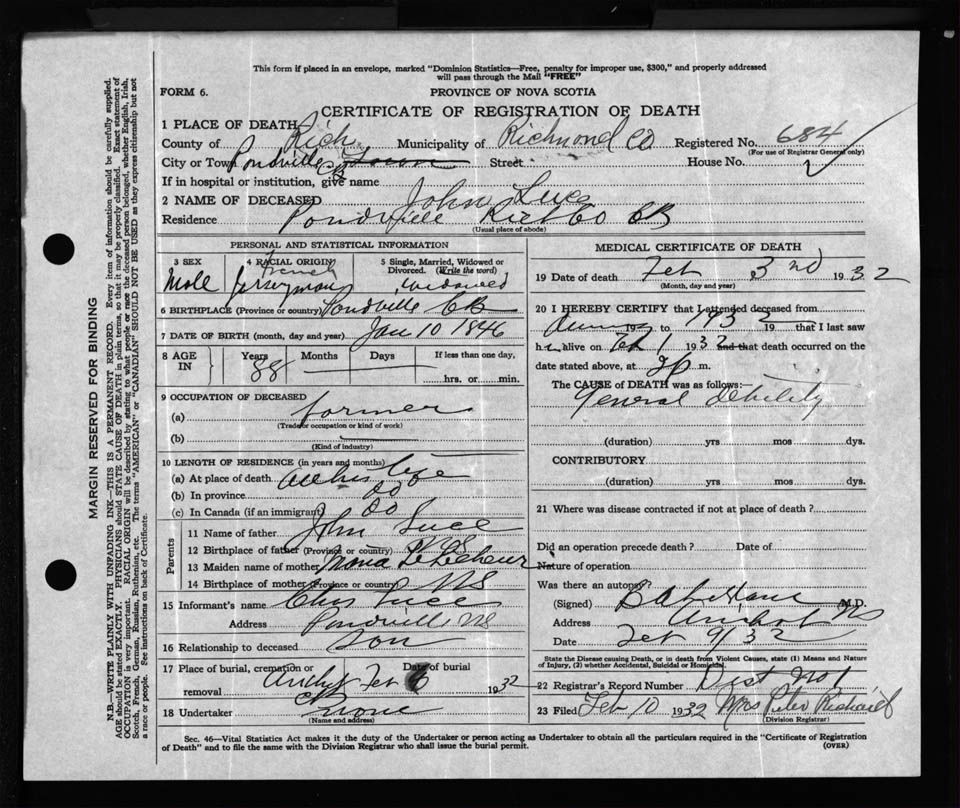 This form if placed in an envelope, marked "Dominion Statistics—Free, penalty for improper use, $300," and properly addressed
will pass through the Mail "FREE"
FORM 6.
PROVINCE OF NOVA SCOTIA
CERTIFICATE OF REGISTRATION OF DEATH
1 PLACE OF DEATH
County of Rich Municipality of Richmond Co Registered No. 684
(For use of Registrar General only)
City or Town Pondville CB Street House No.
If in hospital or institution, give name
2 NAME OF DECEASED John Luce
Residence Pondville Rich Co CB
(Usual place of abode)
PERSONAL AND STATISTICAL INFORMATION
3 SEX 4 RACIAL ORIGIN 5 Single, Married, Widowed or Divorced. (Write the word)
Male French Jerseyman Widowed
6 BIRTHPLACE (Province or country) Pondville CB
7 DATE OF BIRTH (month, day and year) Jan 10 1846
8 AGE IN Years Months Days If less than one day,
88 hrs. or min.
9 OCCUPATION OF DECEASED
(a) farmer
(Trade or occupation or kind of work)
(b)
(Kind of industry)
10 LENGTH OF RESIDENCE (in years and months)
(a) At place of death all his life
(b) In province do
(c) In Canada (if an immigrant) do
Parents
11 Name of father John Luce
12 Birthplace of father (Province or country) NS
13 Maiden name of mother Maria
14 Birthplace of mother (Province or country) NS
15 Informant's name Chas Luce
Address Pondville NS
16 Relationship to deceased son
17 Place of burial, cremation or removal Date of burial
Feb 6 1932
18 Undertaker none
(Name and address)
MEDICAL CERTIFICATE OF DEATH
19 Date of death Feb 3rd 1932
(Month, day and year)
20 I HEREBY CERTIFY that I attended deceased from
19 to 1932 19 that I last saw
h alive on Feb 1 1932 and that death occurred on the
date stated above, at 2 p m.
The CAUSE of DEATH was as follows:—
General debility
(duration) yrs mos dys.
CONTRIBUTORY
(duration) yrs mos dys.
21 Where was disease contracted if not at place of death?
Did an operation precede death? Date of
Nature of operation
Was there an autopsy
(Signed) M.D.
Address Arichat NS
Date Feb 9/32
State the Disease causing Death, or in death from Violent Causes, state (1) Means and Nature
of Injury, (2) whether Accidental, Suicidal or Homicidal.
22 Registrar's Record Number Dist No 1
23 Filed Feb 10 1932 Mrs Peter Richard
(Division Registrar)
Sec. 46—Vital Statistics Act makes it the duty of the Undertaker or person acting as Undertaker to obtain all the particulars required in the "Certificate of Registration
of Death" and to file the same with the Division Registrar who shall issue the burial permit.
(OVER)
MARGIN RESERVED FOR BINDING
N.B.—WRITE PLAINLY WITH UNFADING INK—THIS IS A PERMANENT RECORD. Every item of information should be carefully supplied.
AGE should be stated EXACTLY. PHYSICIANS should STATE CAUSE OF DEATH in plain terms, so that it may be properly classified. Exact statement of
OCCUPATION is very important. RACIAL ORIGIN will be described by stating to what people or race the deceased person belonged, whether English, Irish,
Scotch, French, German, Russian, Ruthenian, etc. The terms "AMERICAN" or "CANADIAN" SHOULD NOT BE USED as they express citizenship but not
a race or people. See instructions on back of Certificate.